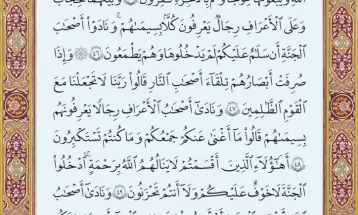 وَعَلَى ٱلْأَعْرَافِ رِجَالٌ يَعْرِفُونَ كُلًّۢا بِسِيمَىٰهُمْ ۚ وَنَادَوْا۟ أَصْحَٰبَ
ٱلْجَنَّةِ أَن سَلَٰمٌ عَلَيْكُمْ ۚ لَمْ يَدْخُلُوهَا وَهُمْ يَطْمَعُونَ ٤٦ ۞ وَإِذَا
صُرِفَتْ أَبْصَٰرُهُمْ تِلْقَآءَ أَصْحَٰبِ ٱلنَّارِ قَالُوا۟ رَبَّنَا لَا تَجْعَلْنَا مَعَ
ٱلْقَوْمِ ٱلظَّٰلِمِينَ ٤٧ وَنَادَىٰٓ أَصْحَٰبُ ٱلْأَعْرَافِ رِجَالًا يَعْرِفُونَهُم
بِسِيمَىٰهُمْ قَالُوا۟ مَآ أَغْنَىٰ عَنكُمْ جَمْعُكُمْ وَمَا كُنتُمْ تَسْتَكْبِرُونَ
٤٨ أَهَٰٓؤُلَآءِ ٱلَّذِينَ أَقْسَمْتُمْ لَا يَنَالُهُمُ ٱللَّهُ بِرَحْمَةٍ ۚ ٱدْخُلُوا۟
ٱلْجَنَّةَ لَا خَوْفٌ عَلَيْكُمْ وَلَآ أَنتُمْ تَحْزَنُونَ ٤٩ وَنَادَىٰٓ أَصْحَٰبُ